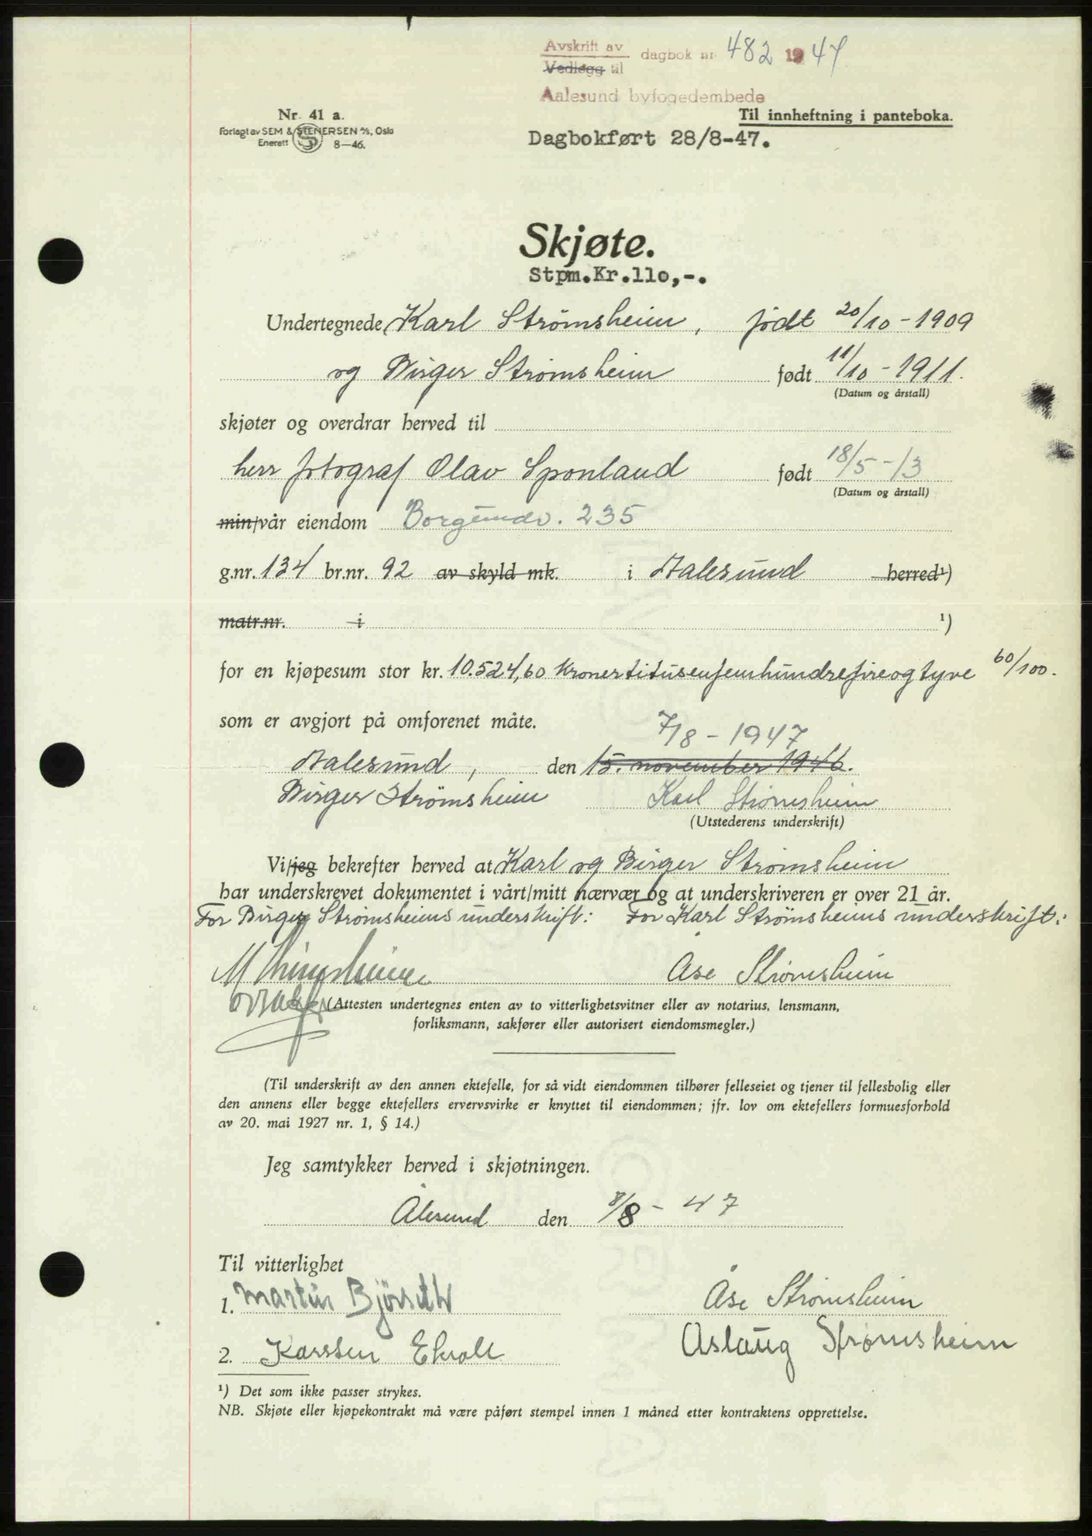 Avskrift av dagbok nr 482 1947
Vedlegg til
Aalesund byfogedembede
Nr. 41 a.
Til innheftning i panteboka.
Forlagt av SEM & STENERSEN A/S, Oslo
Enerett 8-46.
Dagbokført 28/8-47.
Skjøte.
Stpm.Kr.110,-.
Undertegnede Karl Strømsheim, født 20/10-1909
og Birger Strømsheim født 11/10-1911.
(Datum og årstall)
skjøter og overdrar herved til
herr fotograf Olav Sponland født 18/5-13
(Datum og årstall)
min/vår eiendom Borgundv. 235
g.nr. 134 br.nr. 92 av skyld mk. i Aalesund herred¹)
matr.nr. i ¹)
for en kjøpesum stor kr. 10.524,60 Kronertitusenfemhundrefireogtyve 60/100.
som er avgjort på omforenet måte.
7/8-1947
Aalesund, den 15. november 1946.
Birger Strømsheim Karl Strømsheim
(Utstederens underskrift)
Vi/jeg bekrefter herved at Karl og Birger Strømsheim
har underskrevet dokumentet i vårt/mitt nærvær og at underskriveren er over 21 år.
For Birger Strømsheims underskrift: For Karl Strømsheims underskrift:
Åse Strømsheim
(Attesten undertegnes enten av to vitterlighetsvitner eller av notarius, lensmann,
forliksmann, sakfører eller autorisert eiendomsmegler.)
(Til underskrift av den annen ektefelle, for så vidt eiendommen tilhører felleseiet og tjener til fellesbolig eller
den annens eller begge ektefellers ervervsvirke er knyttet til eiendommen; jfr. lov om ektefellers formuesforhold
av 20. mai 1927 nr. 1, § 14.)
Jeg samtykker herved i skjøtningen.
Ålesund den 8/8-47
Til vitterlighet
1. Martin Bjørseth Åse Strømsheim
Aslaug Strømsheim
2. Karsten Ekroll
¹) Det som ikke passer strykes.
NB. Skjøte eller kjøpekontrakt må være påført stempel innen 1 måned etter kontraktens opprettelse.